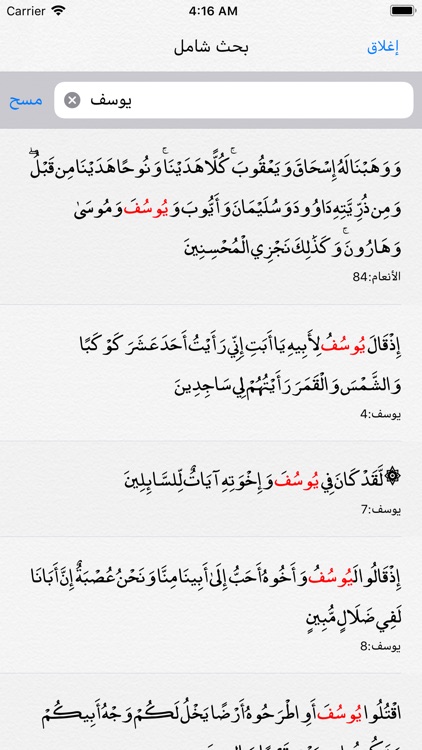 Carrier 4:16 AM
إغلاق
بحث شامل
يوسف
مسح
وَوَهَبْنَا لَهُ إِسْحَاقَ وَيَعْقُوبَ ۚ كُلًّا هَدَيْنَا ۚ وَنُوحًا هَدَيْنَا مِن قَبْلُ ۖ
وَمِن ذُرِّيَّتِهِ دَاوُودَ وَسُلَيْمَانَ وَأَيُّوبَ وَيُوسُفَ وَمُوسَىٰ
وَهَارُونَ ۚ وَكَذَٰلِكَ نَجْزِي الْمُحْسِنِينَ
الأنعام:84
إِذْ قَالَ يُوسُفُ لِأَبِيهِ يَا أَبَتِ إِنِّي رَأَيْتُ أَحَدَ عَشَرَ كَوْكَبًا
وَالشَّمْسَ وَالْقَمَرَ رَأَيْتُهُمْ لِي سَاجِدِينَ
يوسف:4
۞ لَّقَدْ كَانَ فِي يُوسُفَ وَإِخْوَتِهِ آيَاتٌ لِّلسَّائِلِينَ
يوسف:7
إِذْ قَالُوا لَيُوسُفُ وَأَخُوهُ أَحَبُّ إِلَىٰ أَبِينَا مِنَّا وَنَحْنُ عُصْبَةٌ إِنَّ أَبَانَا
لَفِي ضَلَالٍ مُّبِينٍ
يوسف:8
اقْتُلُوا يُوسُفَ أَوِ اطْرَحُوهُ أَرْضًا يَخْلُ لَكُمْ وَجْهُ أَبِيكُمْ